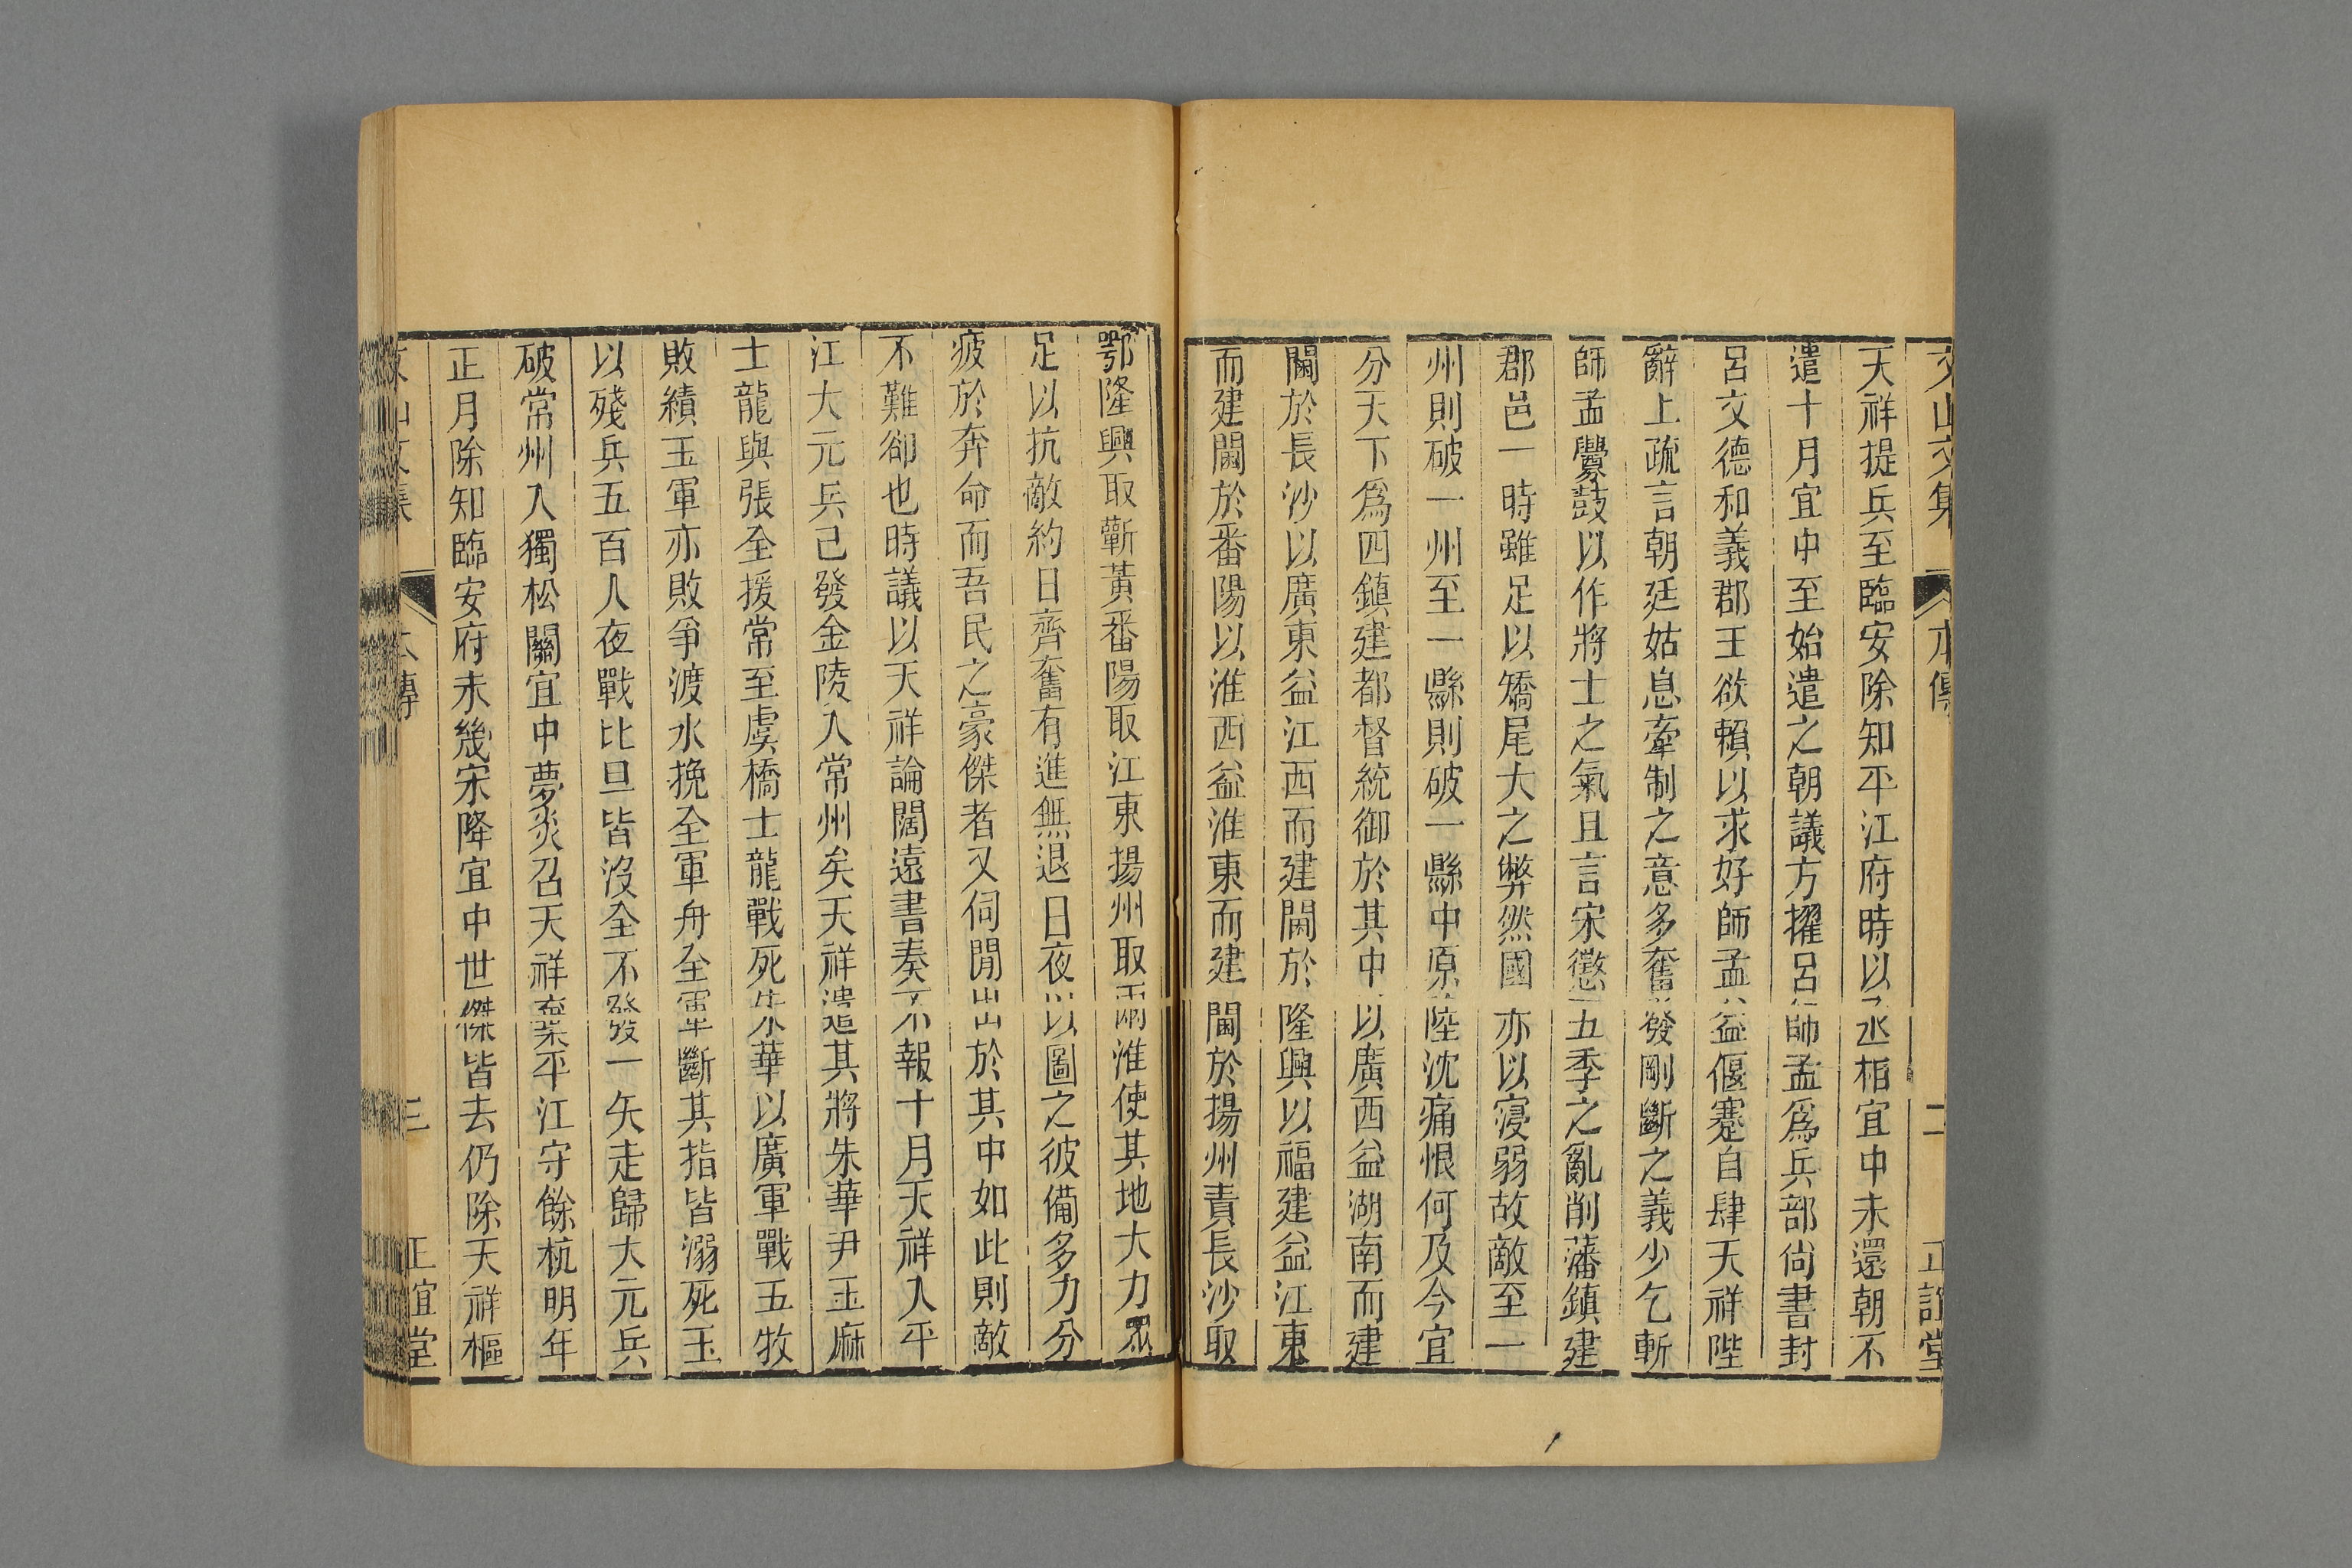 文山文集 本傳 二 正誼堂
天祥提兵至臨安除知平江府時以丞相宜中未還朝不
遣十月宜中至始遣之朝議方擢呂師孟爲兵部尙書封
呂文德和義郡王欲賴以求好師孟益偃蹇自肆天祥陛
辭上疏言朝廷姑息牽制之意多奮發剛斷之義少乞斬
師孟釁鼓以作將士之氣且言宋懲五季之亂削藩鎮建
郡邑一時雖足以矯尾大之弊然國亦以寖弱故敵至一
州則破一州至一縣則破一縣中原陸沈痛恨何及今宜
分天下爲四鎮建都督統御於其中以廣西益湖南而建
閫於長沙以廣東益江西而建閫於隆興以福建益江東
而建閫於番陽以淮西益淮東而建閫於揚州責長沙取
鄂隆興取蘄黃番陽取江東揚州取兩淮使其地大力眾
足以抗敵約日齊奮有進無退日夜以圖之彼備多力分
疲於奔命而吾民之豪傑者又伺閒出於其中如此則敵
不難卻也時議以天祥論闊遠書奏不報十月天祥入平
江大元兵已發金陵入常州矣天祥遣其將朱華尹玉麻
士龍與張全援常至虞橋士龍戰死朱華以廣軍戰五牧
敗績玉軍亦敗爭渡水挽全軍舟全軍斷其指皆溺死玉
以殘兵五百人夜戰比旦皆沒全不發一矢走歸大元兵
破常州入獨松關宜中夢炎召天祥棄平江守餘杭明年
正月除知臨安府未幾宋降宜中世傑皆去仍除天祥樞
文山文集 本傳 三 正誼堂